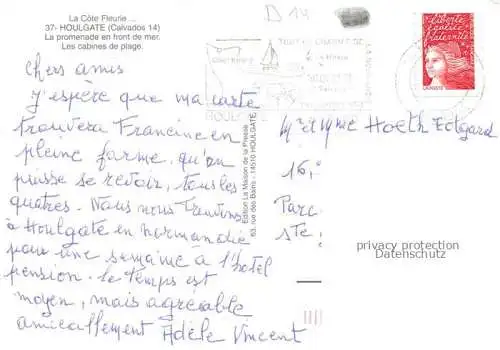 La Côte Fleurie ...
37- HOULGATE (Calvados 14)
La promenade en front de mer.
Les cabines de plage.
D 14
liberté
égalité
fraternité
Chers amis
J'espère que ma carte
trouvera Francine en
pleine forme, qu'on
puisse se revoir, tous les
quatres. Nous nous trouvons
à Houlgate en normandie
pour une semaine à l'hotel
pension. le temps est
moyen, mais agréable
amicallement Adèle Vincent
Edition La Maison de la Presse
63, rue des Bains - 14510 HOULGATE
Mr et Mme Hoeth Edgard
16,
Parc
Ste
privacy protection
Datenschutz